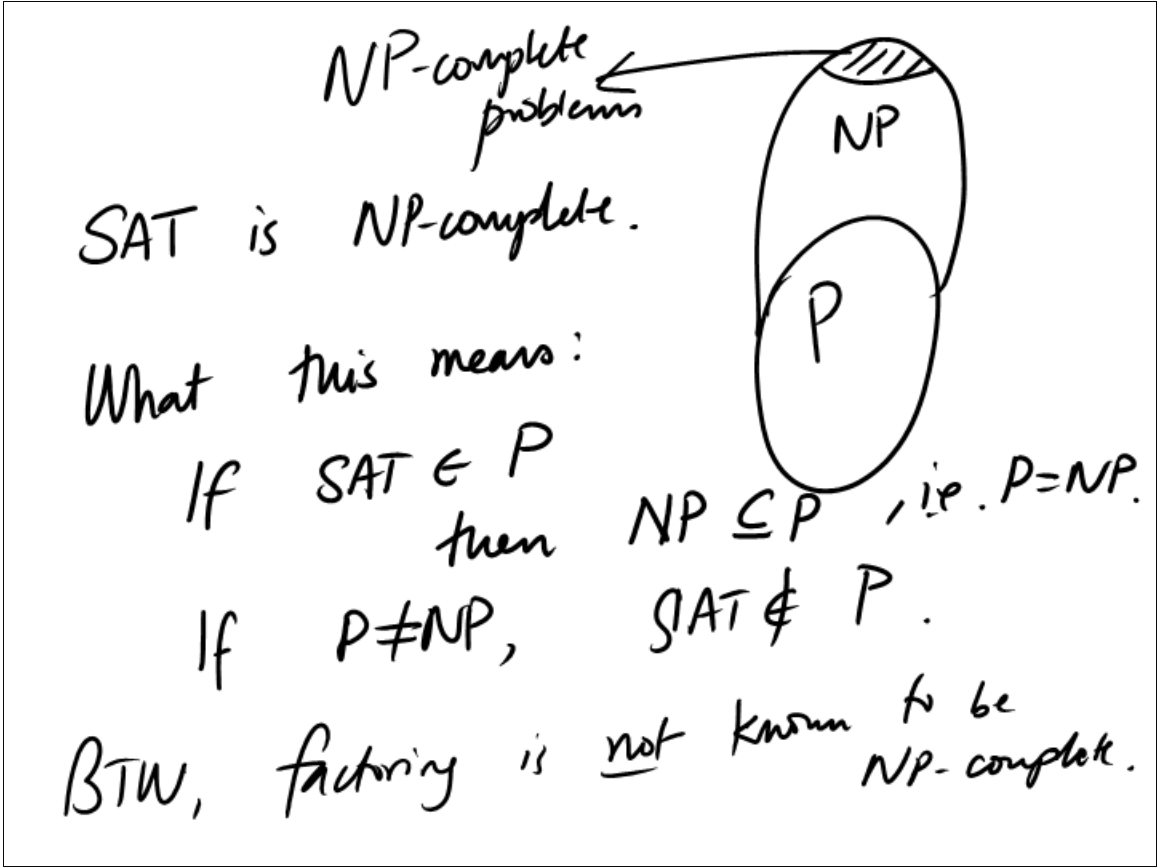 NP-complete
problems
NP
SAT is NP-complete.
P
What this means:
If SAT ∈ P
then NP ⊆ P, i.e. P=NP.
If P≠NP, SAT ∉ P.
BTW, factoring is not known to be
NP-complete.